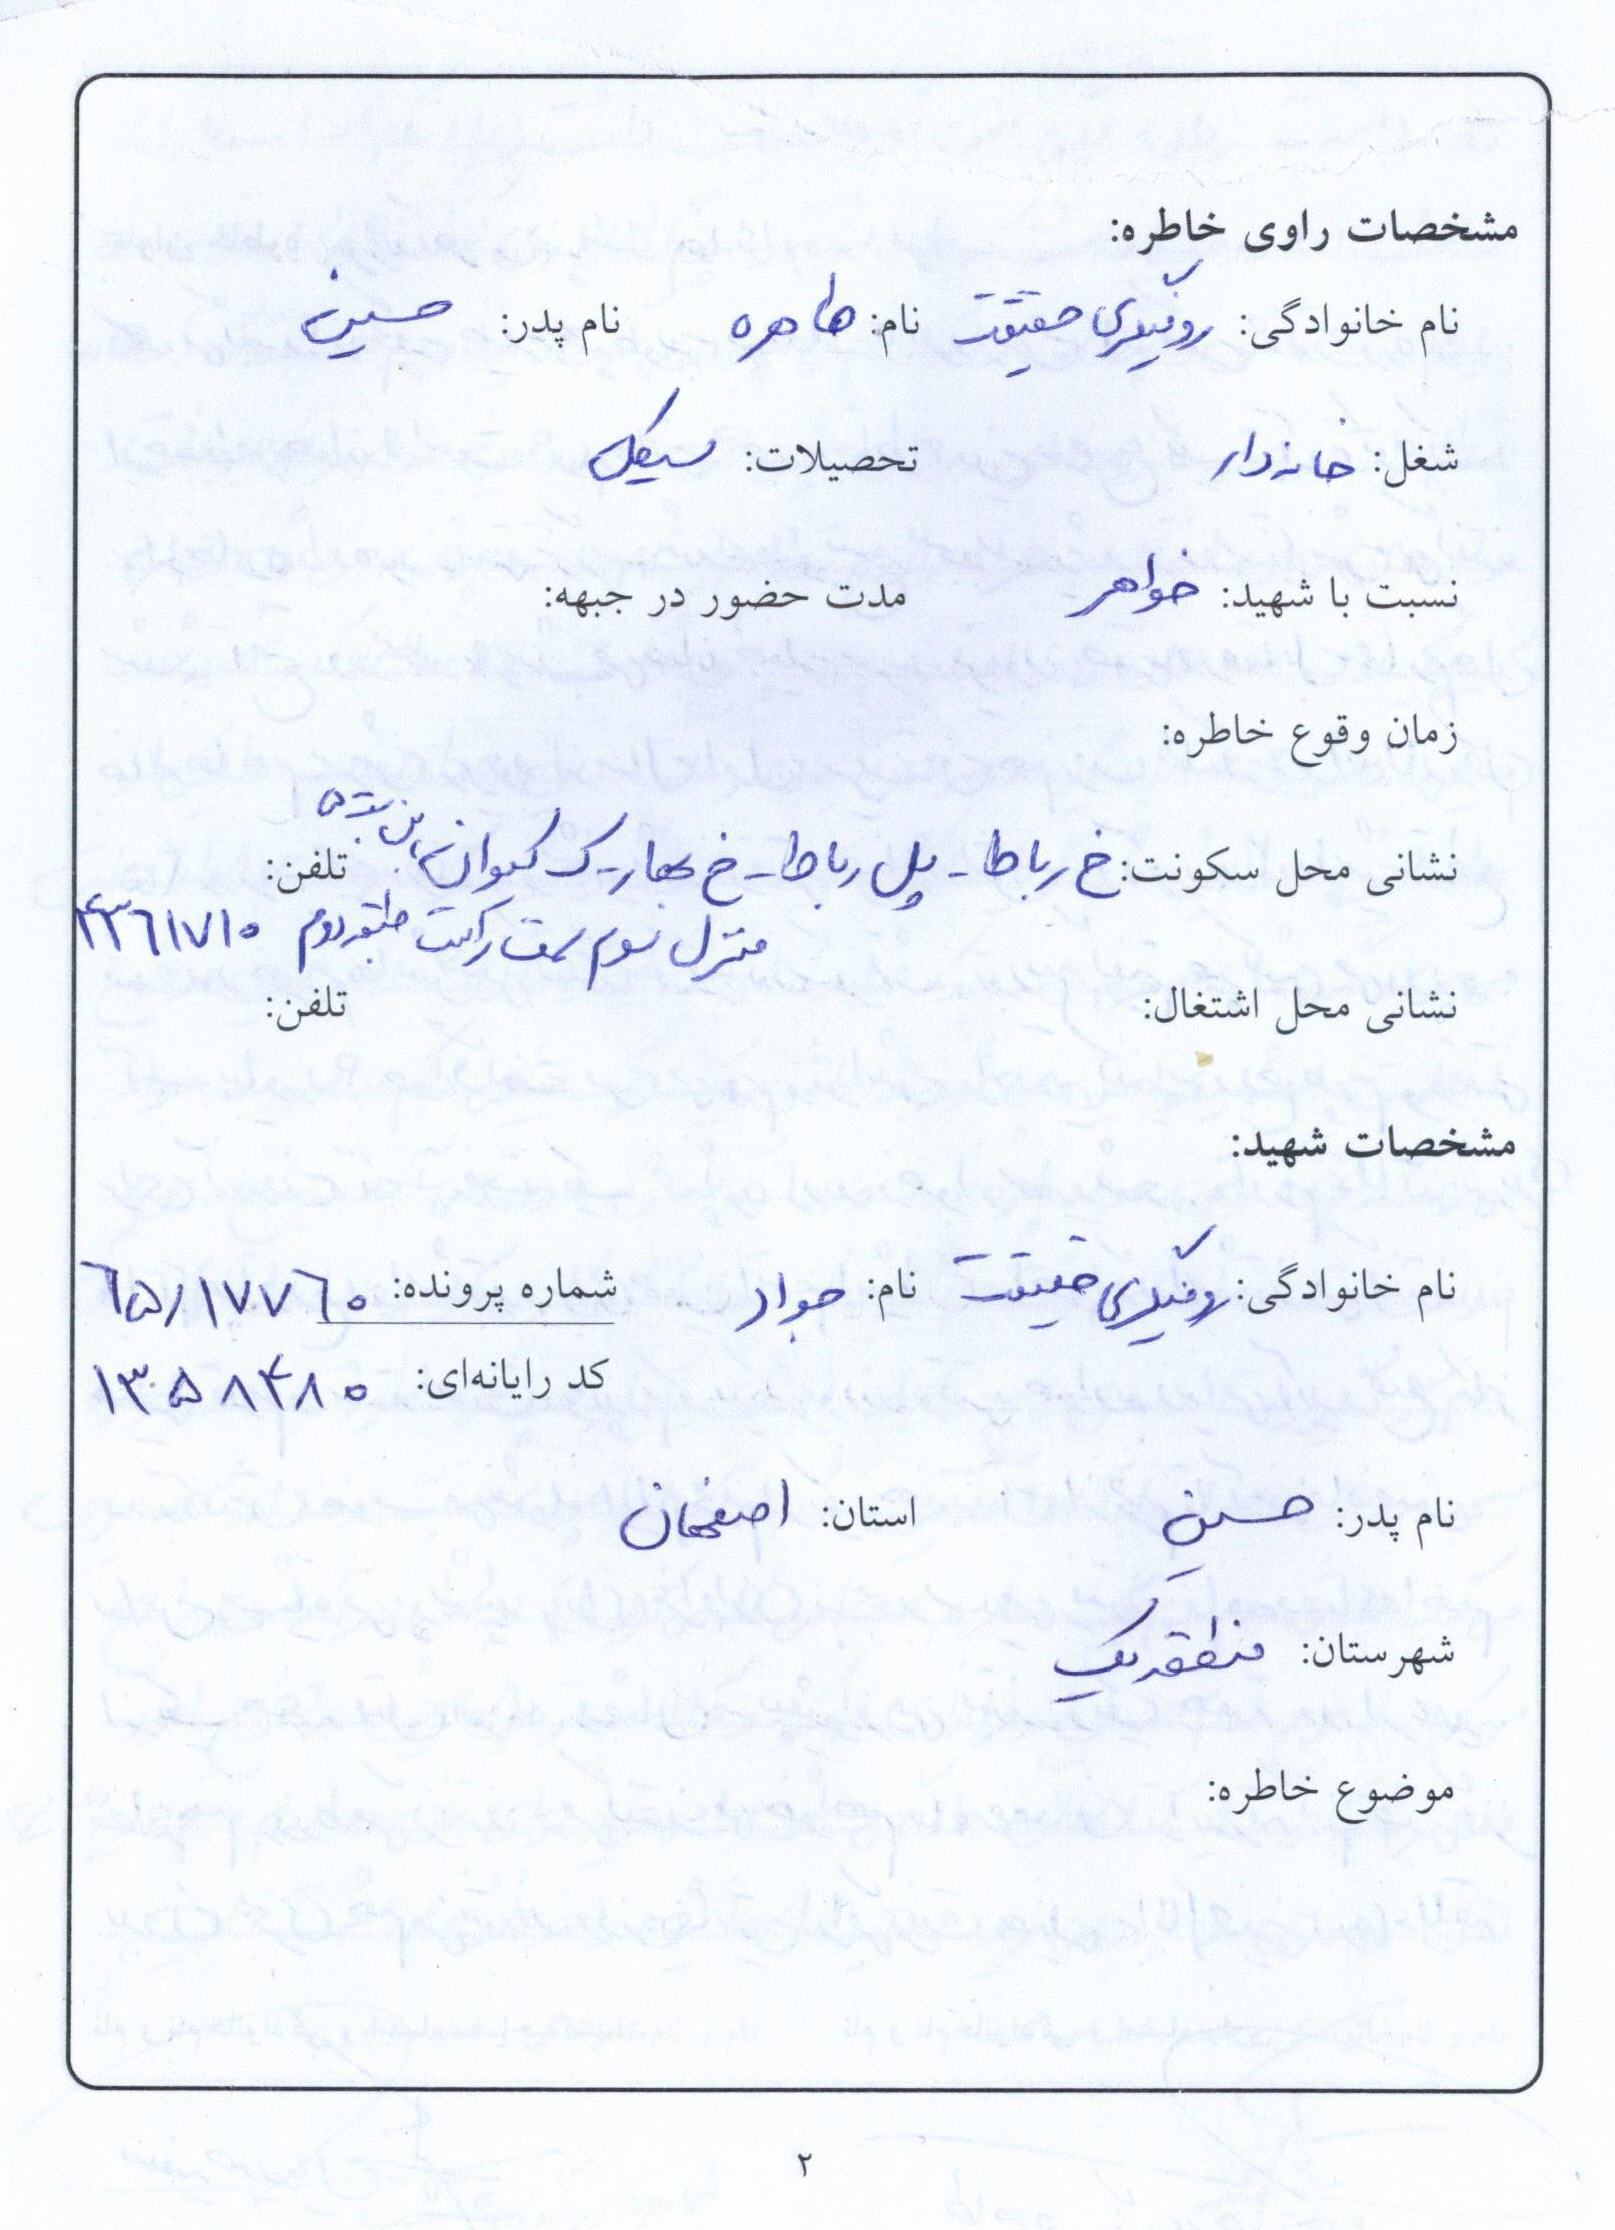 مشخصات راوی خاطره:
نام خانوادگی: روفیگری حقیقت نام: طاهره نام پدر: حسین
شغل: خانه دار تحصیلات: سیکل
نسبت با شهید: خواهر مدت حضور در جبهه:
زمان وقوع خاطره:
نشانی محل سکونت: خ رباط - پل رباط - خ بهار - ک کیوان بن تلفن:
منزل سوم سمت راست طبقه دوم ۴۳۶۱۷۱۰
نشانی محل اشتغال: تلفن:
مشخصات شهید:
نام خانوادگی: روفیگری حقیقت نام: جواد شماره پرونده: ۶۵/۱۷۷۶۰
کد رایانه‌ای: ۱۳۵۸۴۸۰
نام پدر: حسین استان: اصفهان
شهرستان: منطقه یک
موضوع خاطره:
۲